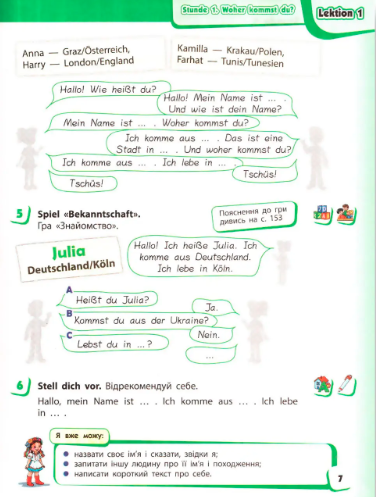 Stunde 1. Woher kommst du?
Lektion 1
Anna — Graz/Österreich,
Harry — London/England
Kamilla — Krakau/Polen,
Farhat — Tunis/Tunesien
Hallo! Wie heißt du?
Hallo! Mein Name ist ... .
Und wie ist dein Name?
Mein Name ist ... . Woher kommst du?
Ich komme aus ... . Das ist eine
Stadt in ... . Und woher kommst du?
Ich komme aus ... . Ich lebe in ... .
Tschüs!
Tschüs!
5 Spiel «Bekanntschaft».
Гра «Знайомство».
Пояснення до гри
дивись на с. 153
Julia
Deutschland/Köln
Hallo! Ich heiße Julia. Ich
komme aus Deutschland.
Ich lebe in Köln.
A
Heißt du Julia?
Ja.
B
Kommst du aus der Ukraine?
Nein.
C
Lebst du in ... ?
...
6 Stell dich vor. Відрекомендуй себе.
Hallo, mein Name ist ... . Ich komme aus ... . Ich lebe
in ... .
Я вже можу:
● назвати своє ім'я і сказати, звідки я;
● запитати іншу людину про її ім'я і походження;
● написати короткий текст про себе.
7